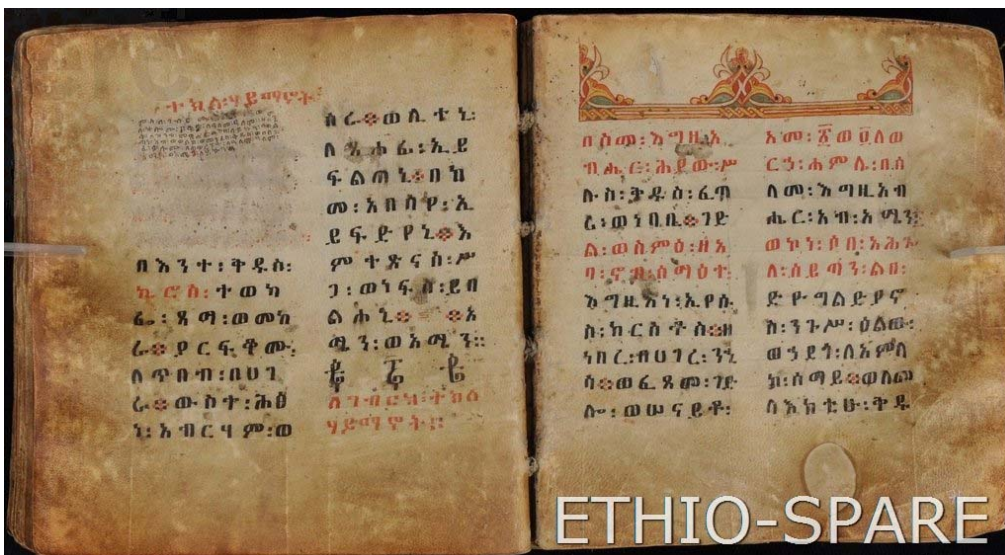 ተክለ፡ሃይማኖት
በእንተ፡ቅዱስ፡
ኪሮስ፡ተወካ
ፌ፡ጻማ፡ወመከ
ራ፨ያርፍቅሙ፡
ለጥበብ፡በሀገ
ራ፨ውስተ፡ሕፅ
ነ፡አብርሃም፡ወ
ሳሬ፨ወሊተኒ፡
ለጸሐፊ፡ኢይ
ፍልጠኒ፨በከ
መ፡አበስየ፡ኢ
ይፍድየኒ፨እ
ምተጽናስ፡ሥ
ጋ፡ወነፍስ፡ይበ
ልሐኒ፨ ፨አ
ሜን፡ወአሜን።
ተክለ
ሃይማኖት።
በስመ፡እግዚአ
ብሔር፡ሕያው፡ሥ
ሉስ፡ቅዱስ፡ፈጣ
ሪ፡ወነባቢ፨ገድ
ል፡ወስምዕ፡ዘአ
ባ፡ኖብ፡ሰማዕተ፡
እግዚእነ፡ኢየሱ
ስ፡ክርስቶስ፨ዘ
ነበረ፡ብሀገረ፡ንሂ
ሳ፨ወፈጸመ፡ገድ
ሎ፡ወሠናይቶ፡
አመ፡፳ወ፬ለወ
ርኃ፡ሐምሌ፡በሰ
ላመ፡እግዚአብ
ሔር፡አብ፡አሜን፡
ወኮነ፡ሶበ፡አሕጐ
ለ፡ሰይጣን፡ልበ፡
ድዮግልድያኖ
ስ፡ንጉሥ፡ዕልው፡
ወኃደጎ፡ለአምላ
ከ፡ሰማይ፨ወለመ
ላእክቲሁ፡ቅዱ
ETHIO-SPARE